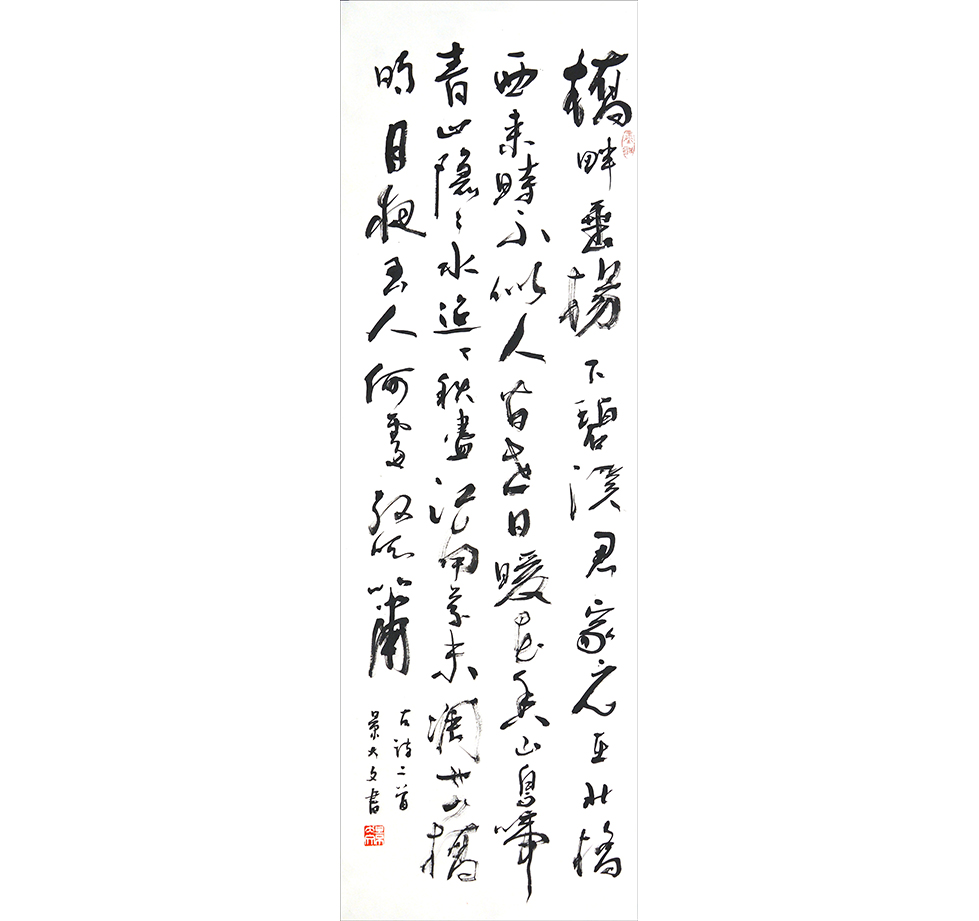 橋畔垂楊下碧溪君家元在北橋
西来時不似人間世日暖花香山鳥啼
青山隱々水迢々秋盡江南草未凋廿四橋
明月夜玉人何處教吹簫
古詩二首
景大文書